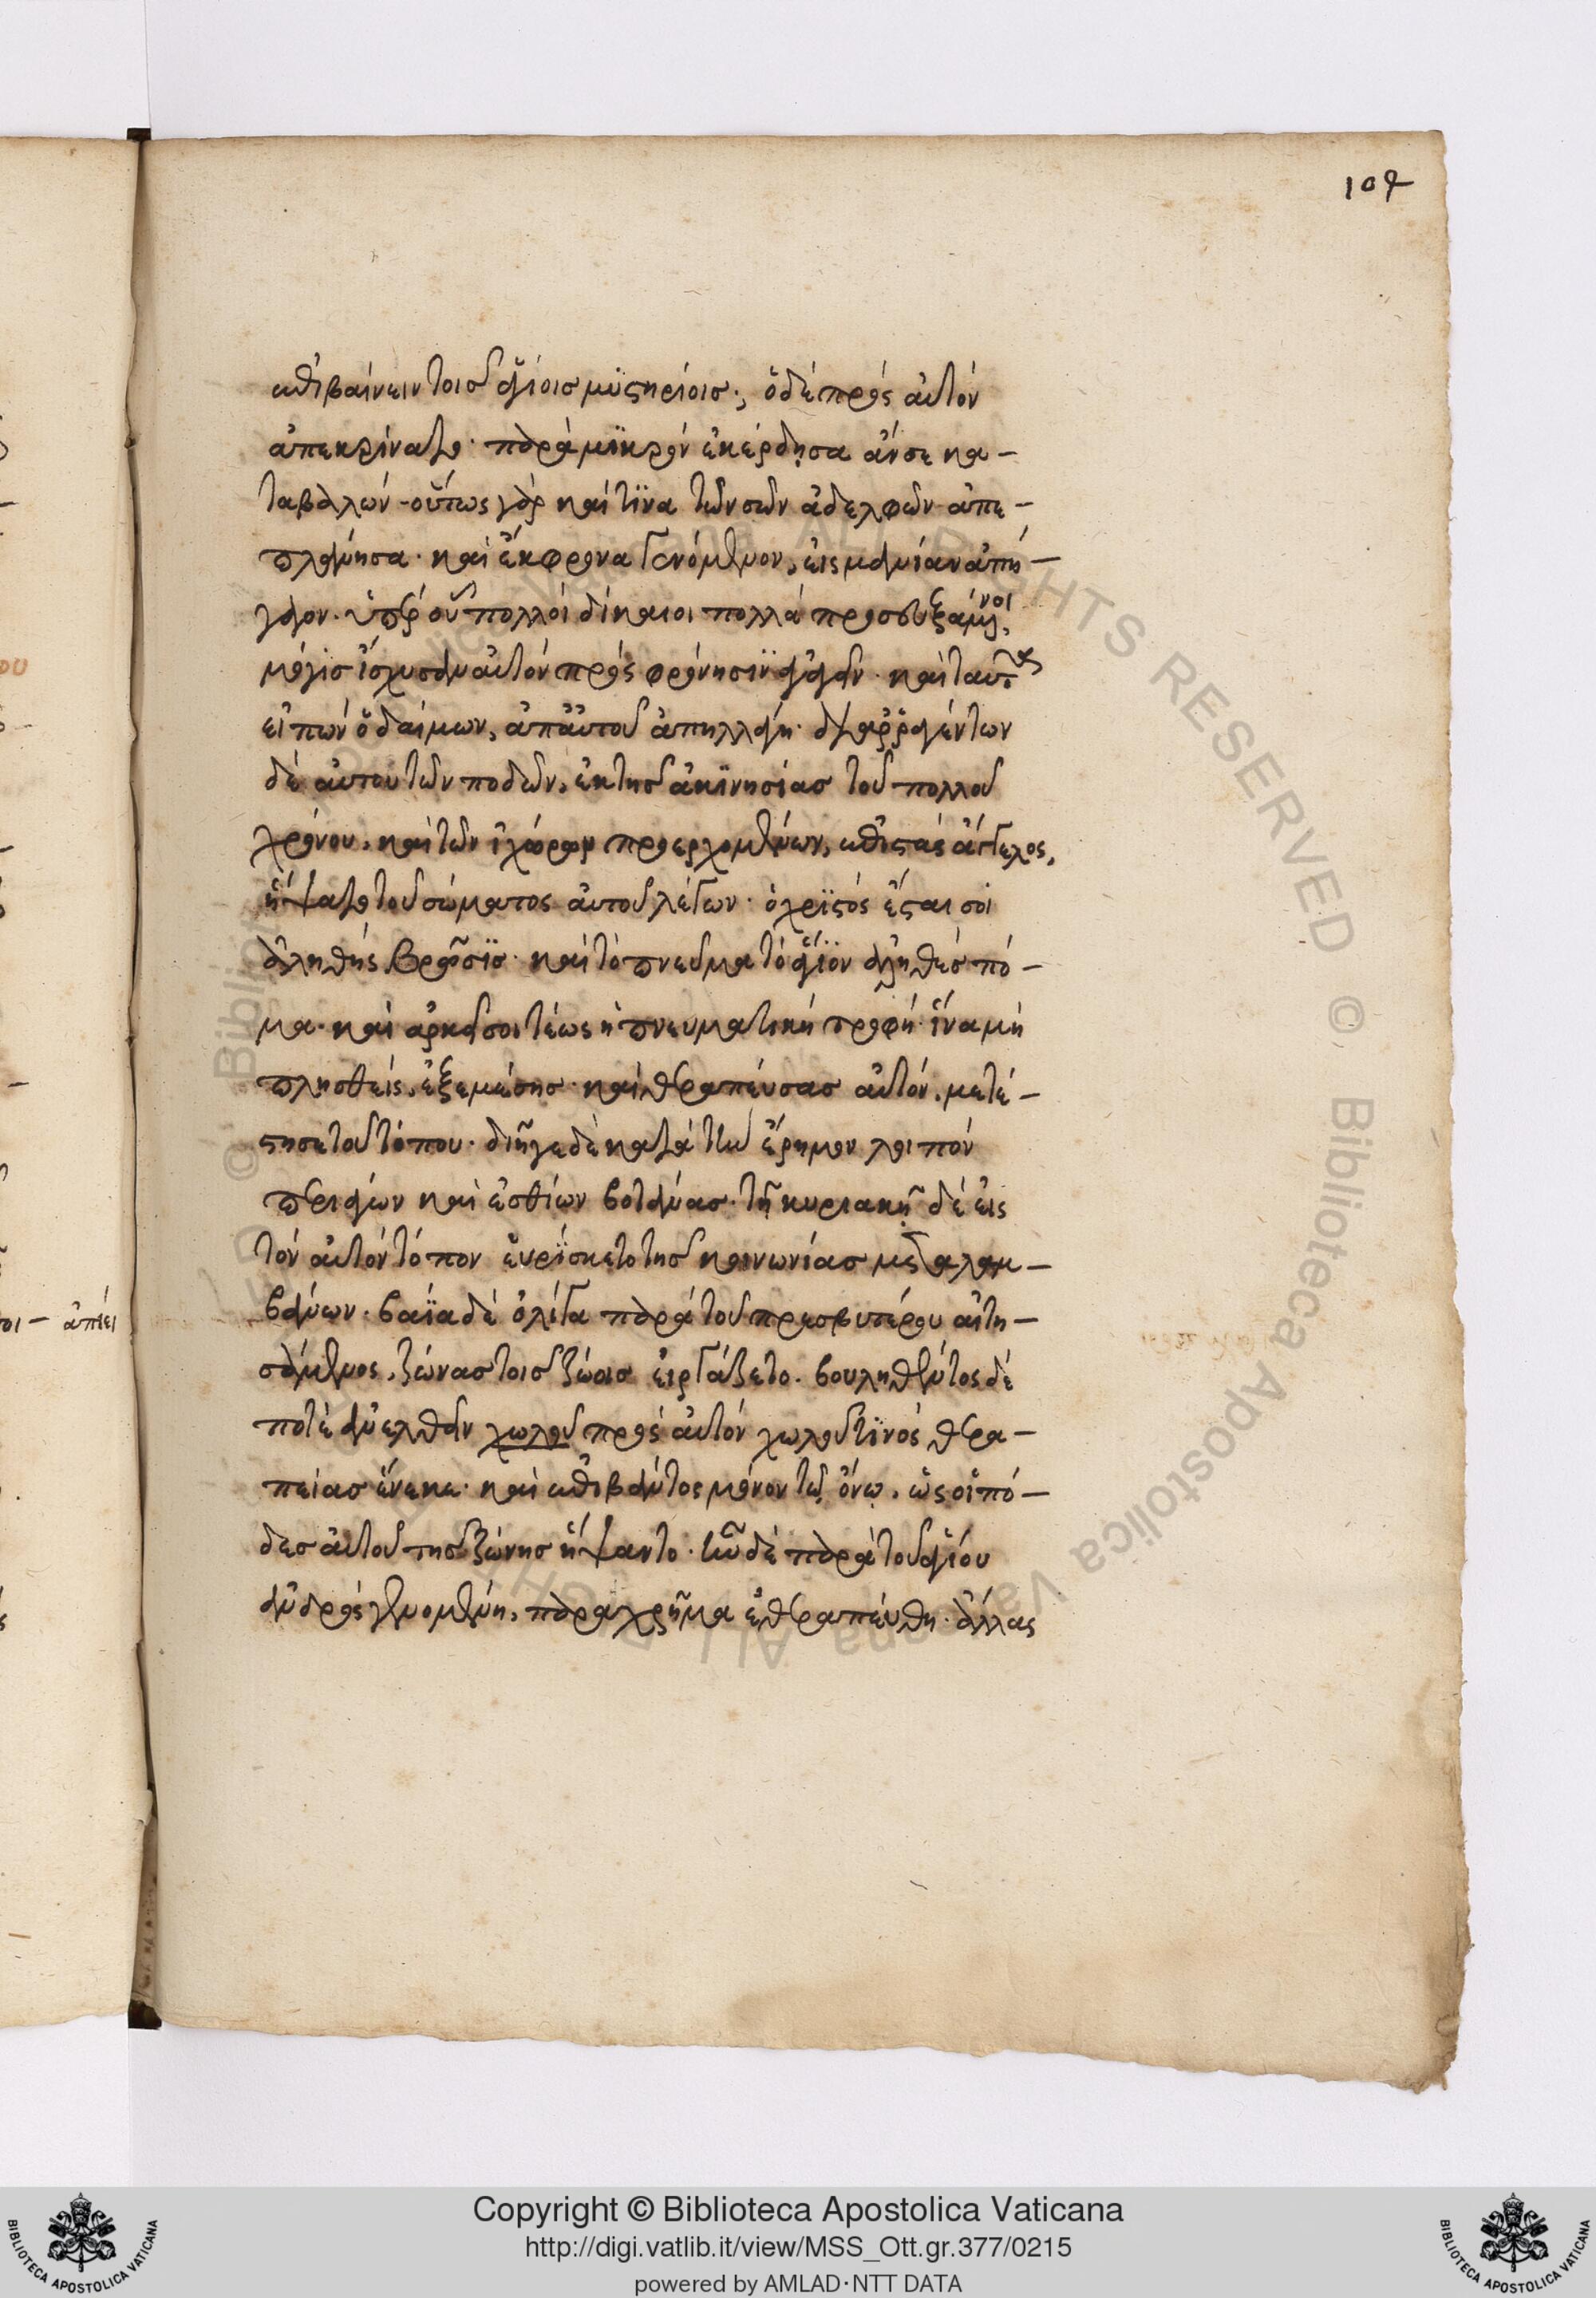 107
ἐπιβαίνειν τοῖς ἁγίοις μϋστηρίοις· ὁ δὲ πρὸς αὐτὸν
ἀπεκρίνατο· παρὰ μϊκρὸν ἐκέρδησα ἄν σε κα-
ταβαλών· οὕτως γὰρ καὶ τϊνὰ τῶν σῶν ἀδελφῶν ἀπε-
πλάνησα· καὶ ἔκφρονα γενόμενον, εἰς μανίαν ἀπή-
γαγον· ὑπὲρ οὗ πολλοὶ δίκαιοι πολλὰ προσευξάμενοι,
μόγϊς ἴσχυσαν αὐτὸν πρὸς φρόνησϊν ἀγαγεῖν· καὶ ταῦτα
εἰπὼν ὁ δαίμων, ἀπ' αὐτοῦ ἀπηλλάγη· διαρραγέντων
δὲ αὐτοῦ τῶν ποδῶν, ἐκ τῆς ἀκϊνησίας τοῦ πολλοῦ
χρόνου, καὶ τῶν ἰχώρων προερχομένων, ἐπιστὰς ἄγγελος,
ἥψατο τοῦ σώματος αὐτοῦ λέγων· ὁ χρϊστὸς ἔσται σοι
ἀληθὴς βρῶσϊς· καὶ τὸ πνεῦμα τὸ ἅγϊον ἀληθὲς πό-
μα· καὶ ἀρκεῖ σοι τέως ἡ πνευματικὴ τροφή· ἵνα μὴ
πλησθεὶς, ἐξεμέσης· καὶ θεραπεύσας αὐτὸν, μετέ-
στησε τοῦ τόπου· διῆγε δὲ κατὰ τὴν ἔρημον λοιπὸν
περιϊὼν καὶ ἐσθίων βοτάνας· τῇ κυριακῇ δὲ εἰς
τὸν αὐτὸν τόπον εὑρϊσκετο τῆς κοινωνίας μεταλαμ-
βάνων· βαϊα δὲ ὀλίγα παρὰ τοῦ πρεσβυτέρου αἰτη-
σάμενος, ζώνας τοῖς ζώοις εἰργάζετο. βουληθέντος δέ
ποτε ἀνελθεῖν χωλοῦ πρὸς αὐτὸν χωλοῦ τϊνὸς θερα-
πείας ἕνεκα· καὶ ἐπιβάντος μόνον τῷ ὄνῳ, ὡς οἱ πό-
δες αὐτοῦ τῆς ζώνης ἥψαντο· τῆς δὲ παρὰ τοῦ ἁγίου
ἀνδρὸς γενομένη, παραχρῆμα ἐθεραπεύθη· ἄλλας
ἀπίει
Copyright © Biblioteca Apostolica Vaticana
http://digi.vatlib.it/view/MSS_Ott.gr.377/0215
powered by AMLAD·NTT DATA
BIBLIOTECA APOSTOLICA VATICANA
BIBLIOTECA APOSTOLICA VATICANA